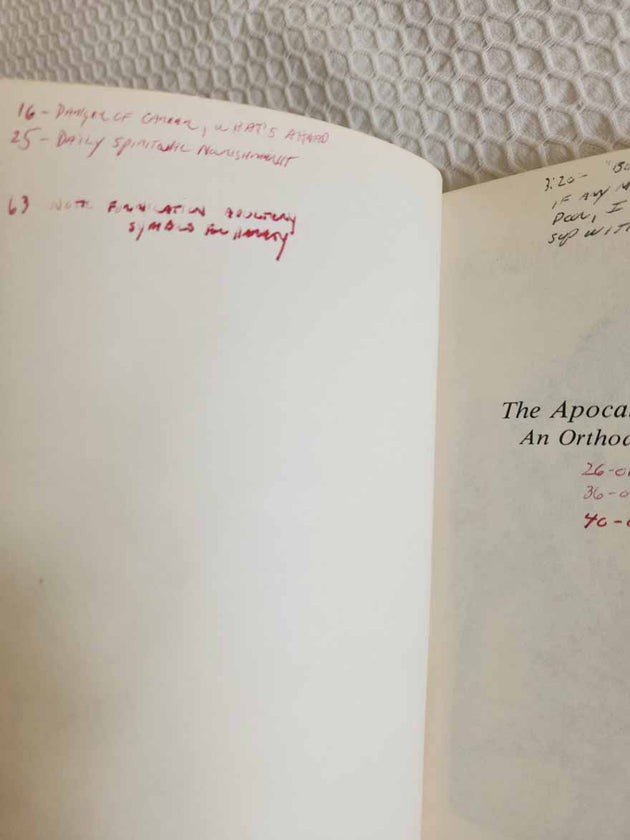 16 - DANGER OF CAREER, WHAT'S AHEAD
25 - DAILY SPIRITUAL NOURISHMENT
63 NOTE FORNICATION ADULTERY
SYMBOLS FOR HERESY
3:20 - "BE
IF ANY M
DOOR, I
SUP WIT
The Apoca
An Orthod
26 - O
36 - O
40 -